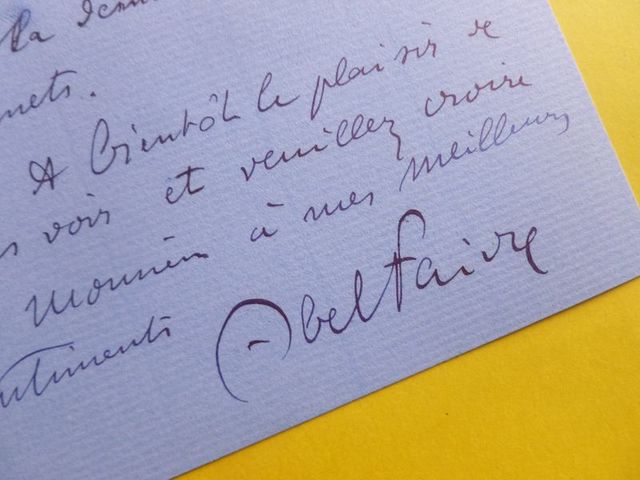 la
mets.
A bientôt le plaisir de
vois et veuillez croire
Monsieur à mes meilleurs
sentiments Abel Faivre